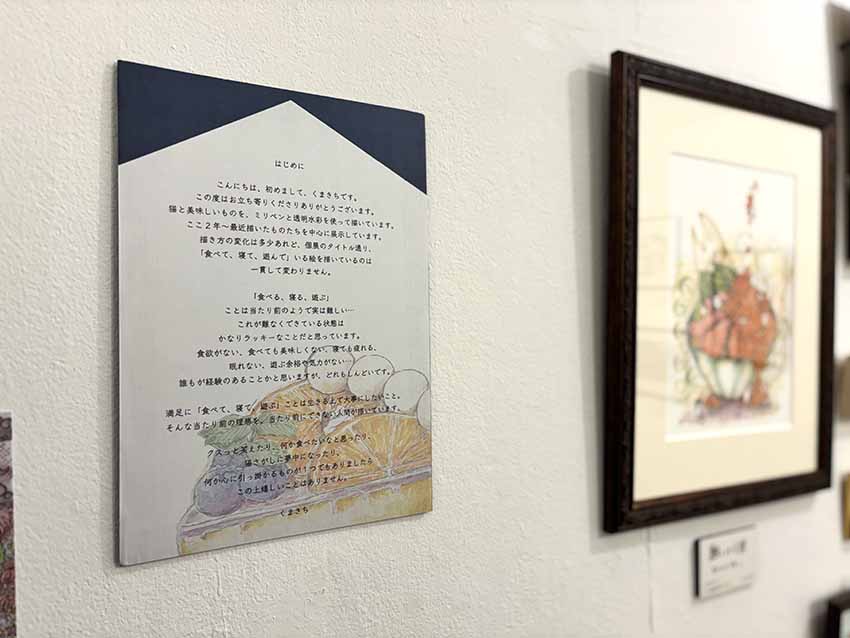 はじめに
こんにちは、初めまして、くまきちです。
この度はお立ち寄りくださりありがとうございます。
猫と美味しいものを、ミリペンと透明水彩を使って描いています。
ここ2年〜最近描いたものたちを中心に展示しています。
描き方の変化は多少あれど、個展のタイトル通り、
「食べて、寝て、遊んで」いる絵を描いているのは
一貫して変わりません。
「食べる、寝る、遊ぶ」
ことは当たり前のようで実は難しい…
これが難なくできている状態は
かなりラッキーなことだと思っています。
食欲がない、食べても美味しくない、寝ても疲れる、
眠れない、遊ぶ余裕や気力がない…
誰もが経験のあることかと思いますが、どれもしんどいです。
満足に「食べて、寝て、遊ぶ」ことは生きる上で大事にしたいこと。
そんな当たり前の理想を、当たり前にできない人間が描いています。
クスっと笑えたり、何か食べたいなと思ったり、
猫さがしに夢中になったり、
何か心に引っ掛かるものが1つでもありましたら
この上嬉しいことはありません。
くまきち